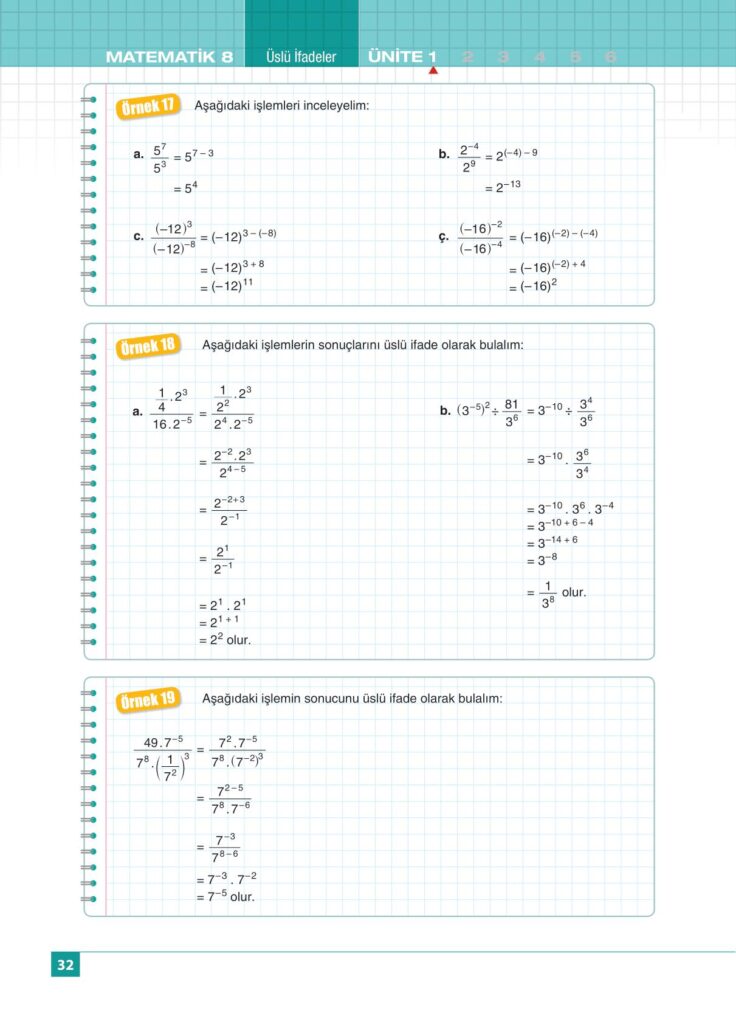 MATEMATİK 8 Üslü İfadeler ÜNİTE 1 2 3 4 5 6
Örnek 17 Aşağıdaki işlemleri inceleyelim:
a. 5⁷/5³ = 5⁷ ⁻ ³
= 5⁴
b. 2⁻⁴/2⁹ = 2⁽⁻⁴⁾ ⁻ ⁹
= 2⁻¹³
c. (–12)³/(–12)⁻⁸ = (–12)³ ⁻ ⁽⁻⁸⁾
= (–12)³ ⁺ ⁸
= (–12)¹¹
ç. (–16)⁻²/(–16)⁻⁴ = (–16)⁽⁻²⁾ ⁻ ⁽⁻⁴⁾
= (–16)⁽⁻²⁾ ⁺ ⁴
= (–16)²
Örnek 18 Aşağıdaki işlemlerin sonuçlarını üslü ifade olarak bulalım:
a. (1/4 . 2³)/(16 . 2⁻⁵) = (1/2² . 2³)/(2⁴ . 2⁻⁵)
= (2⁻² . 2³)/2⁴⁻⁵
= 2⁻²⁺³/2⁻¹
= 2¹/2⁻¹
= 2¹ . 2¹
= 2¹ ⁺ ¹
= 2² olur.
b. (3⁻⁵)² ÷ 81/3⁶ = 3⁻¹⁰ ÷ 3⁴/3⁶
= 3⁻¹⁰ . 3⁶/3⁴
= 3⁻¹⁰ . 3⁶ . 3⁻⁴
= 3⁻¹⁰ ⁺ ⁶ ⁻ ⁴
= 3⁻¹⁴ ⁺ ⁶
= 3⁻⁸
= 1/3⁸ olur.
Örnek 19 Aşağıdaki işlemin sonucunu üslü ifade olarak bulalım:
(49 . 7⁻⁵)/(7⁸ . (1/7²)³) = (7² . 7⁻⁵)/(7⁸ . (7⁻²)³)
= 7²⁻⁵/(7⁸ . 7⁻⁶)
= 7⁻³/7⁸⁻⁶
= 7⁻³ . 7⁻²
= 7⁻⁵ olur.
32